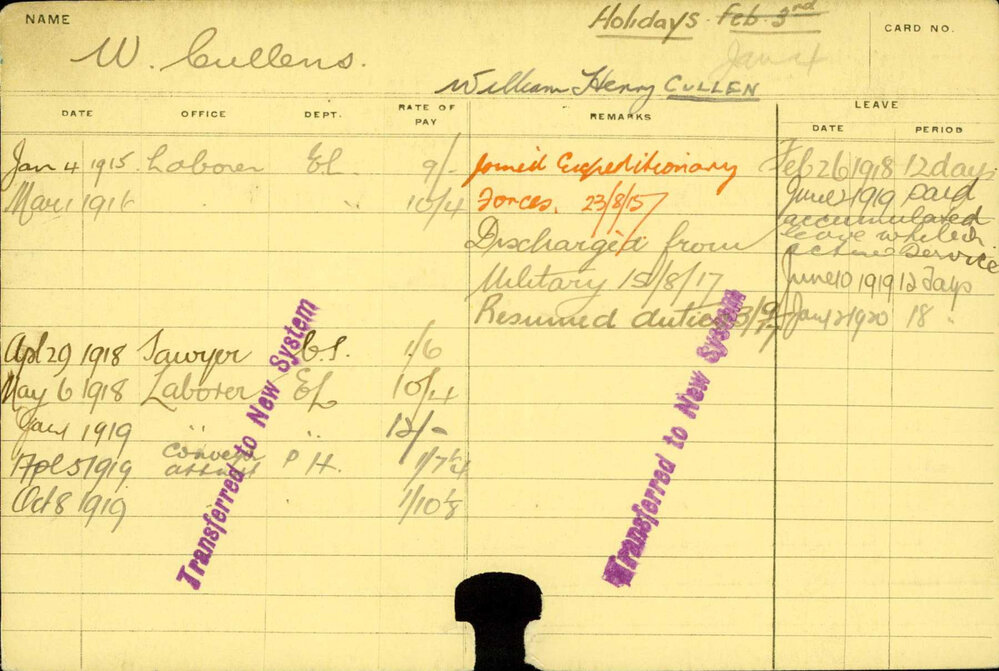 NAME
Holidays Feb. 3rd
CARD NO.
W. Cullens.
Jan 4
William Henry CULLEN
DATE OFFICE DEPT. RATE OF PAY REMARKS LEAVE
DATE PERIOD
Jan 4 1915 Laborer EL 9/- Joined Expeditionary Feb 26 1918 12 days
Mar 1 1916 10/4 Forces. 23/8/15 June 2 1919 paid
accumulated
Discharged from leave while on
active service
Military 15/8/17 June 10 1919 12 days
Resumed duties 3/9/17 Jan 12 1920 18 "
Apl 29 1918 Sawyer 1/6
May 6 1918 Laborer EL 10/4
Jan 1 1919 " " 12/-
Apl 5 1919 P H. 1/7 1/4
Oct 8 1919 1/10 1/8
Transferred to New System
Transferred to New System